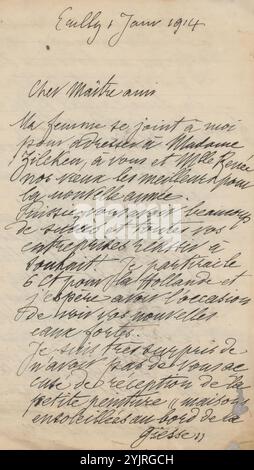 Ecully 1 Janv 1914
Cher Maître ami
Ma femme se joint à moi
pour adresser à Madame
Zilcken, à vous et Mlle Renée
nos vœux les meilleurs pour
la nouvelle année.
beaucoup
de succès et toutes vos
entreprises réussir à
souhait. Je partirai le
6 ct pour la Hollande et
j'espère avoir l'occasion
de voir vos nouvelles
eaux fortes.
Je suis très surpris de
n'avoir pas de vous ac
cusé de réception de la
petite peinture „maisons
ensoleillées au bord de la
alamy
Image ID: 2YJRGCH
www.alamy.com